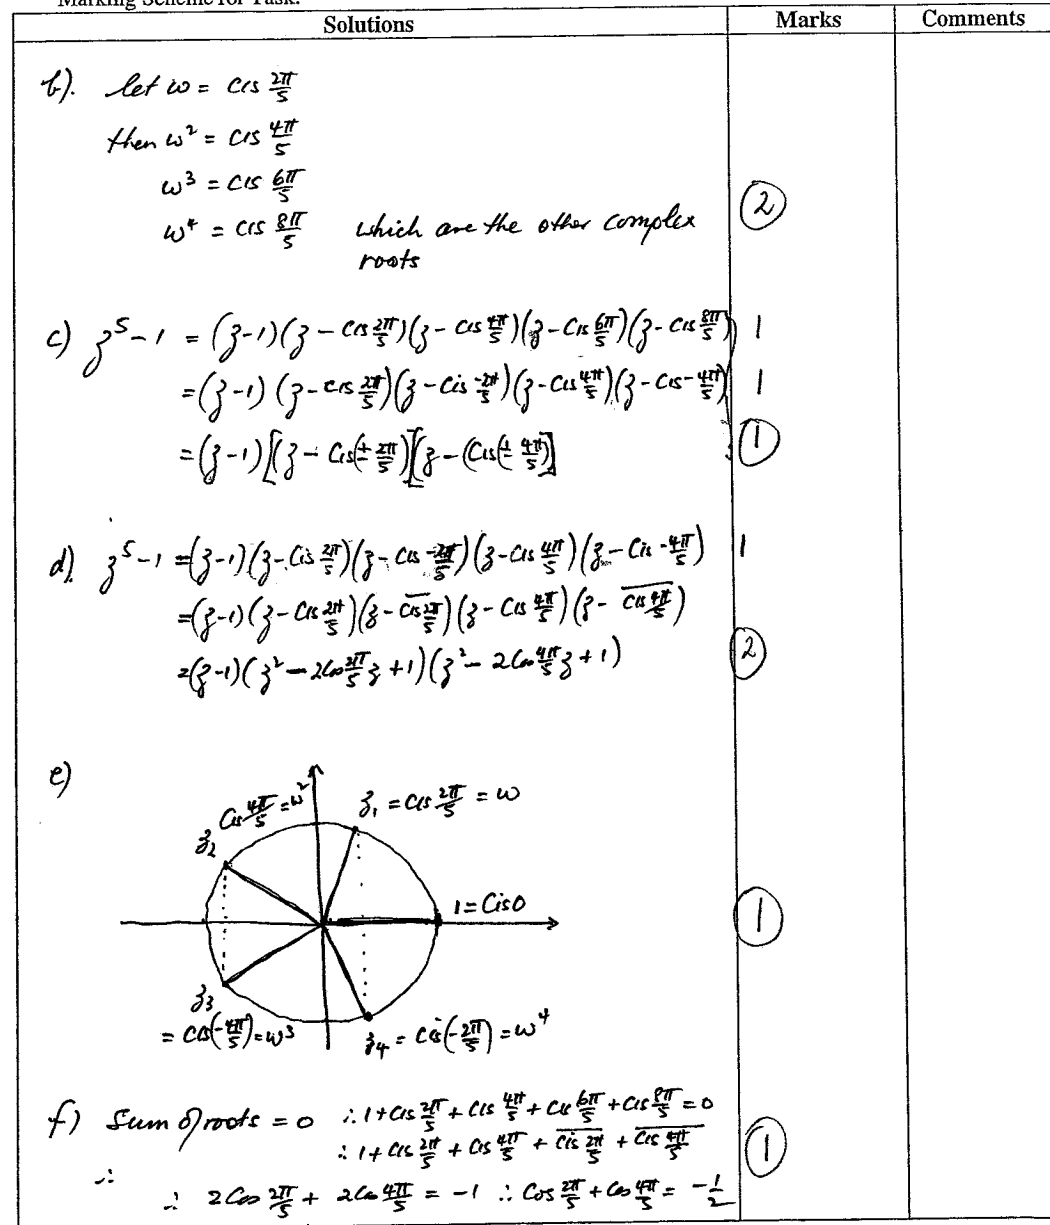 Marking Scheme for Task.
Solutions Marks Comments
b). let ω = cis 2π/5
then ω² = cis 4π/5
ω³ = cis 6π/5
ω⁴ = cis 8π/5 which are the other complex
roots
2
c) z⁵-1 = (z-1)(z - Cis 2π/5)(z - Cis 4π/5)(z - Cis 6π/5)(z - Cis 8π/5) 1
= (z-1) (z - cis 2π/5)(z - Cis -2π/5)(z - Cis 4π/5)(z - Cis -4π/5) 1
= (z-1)[(z - Cis(± 2π/5)][z - (Cis(± 4π/5)] 1
d). z⁵-1 = (z-1)(z - Cis 2π/5)(z - Cis -2π/5)(z - Cis 4π/5)(z - Cis -4π/5) 1
= (z-1)(z - Cis 2π/5)(z - \overline{Cis 2π/5})(z - Cis 4π/5)(z - \overline{Cis 4π/5})
= (z-1)(z² - 2Cos 2π/5 z + 1)(z² - 2Cos 4π/5 z + 1) 2
e)
Cis 4π/5 = ω²
z₁ = Cis 2π/5 = ω
z₂
1 = Cis 0
1
z₃
= Cis(-4π/5) = ω³
z₄ = Cis(-2π/5) = ω⁴
f) Sum of roots = 0 ∴ 1 + Cis 2π/5 + Cis 4π/5 + Cis 6π/5 + Cis 8π/5 = 0
∴ 1 + Cis 2π/5 + Cis 4π/5 + \overline{Cis 2π/5} + \overline{Cis 4π/5}
1
∴
∴ 2 Cos 2π/5 + 2 Cos 4π/5 = -1 ∴ Cos 2π/5 + Cos 4π/5 = -1/2